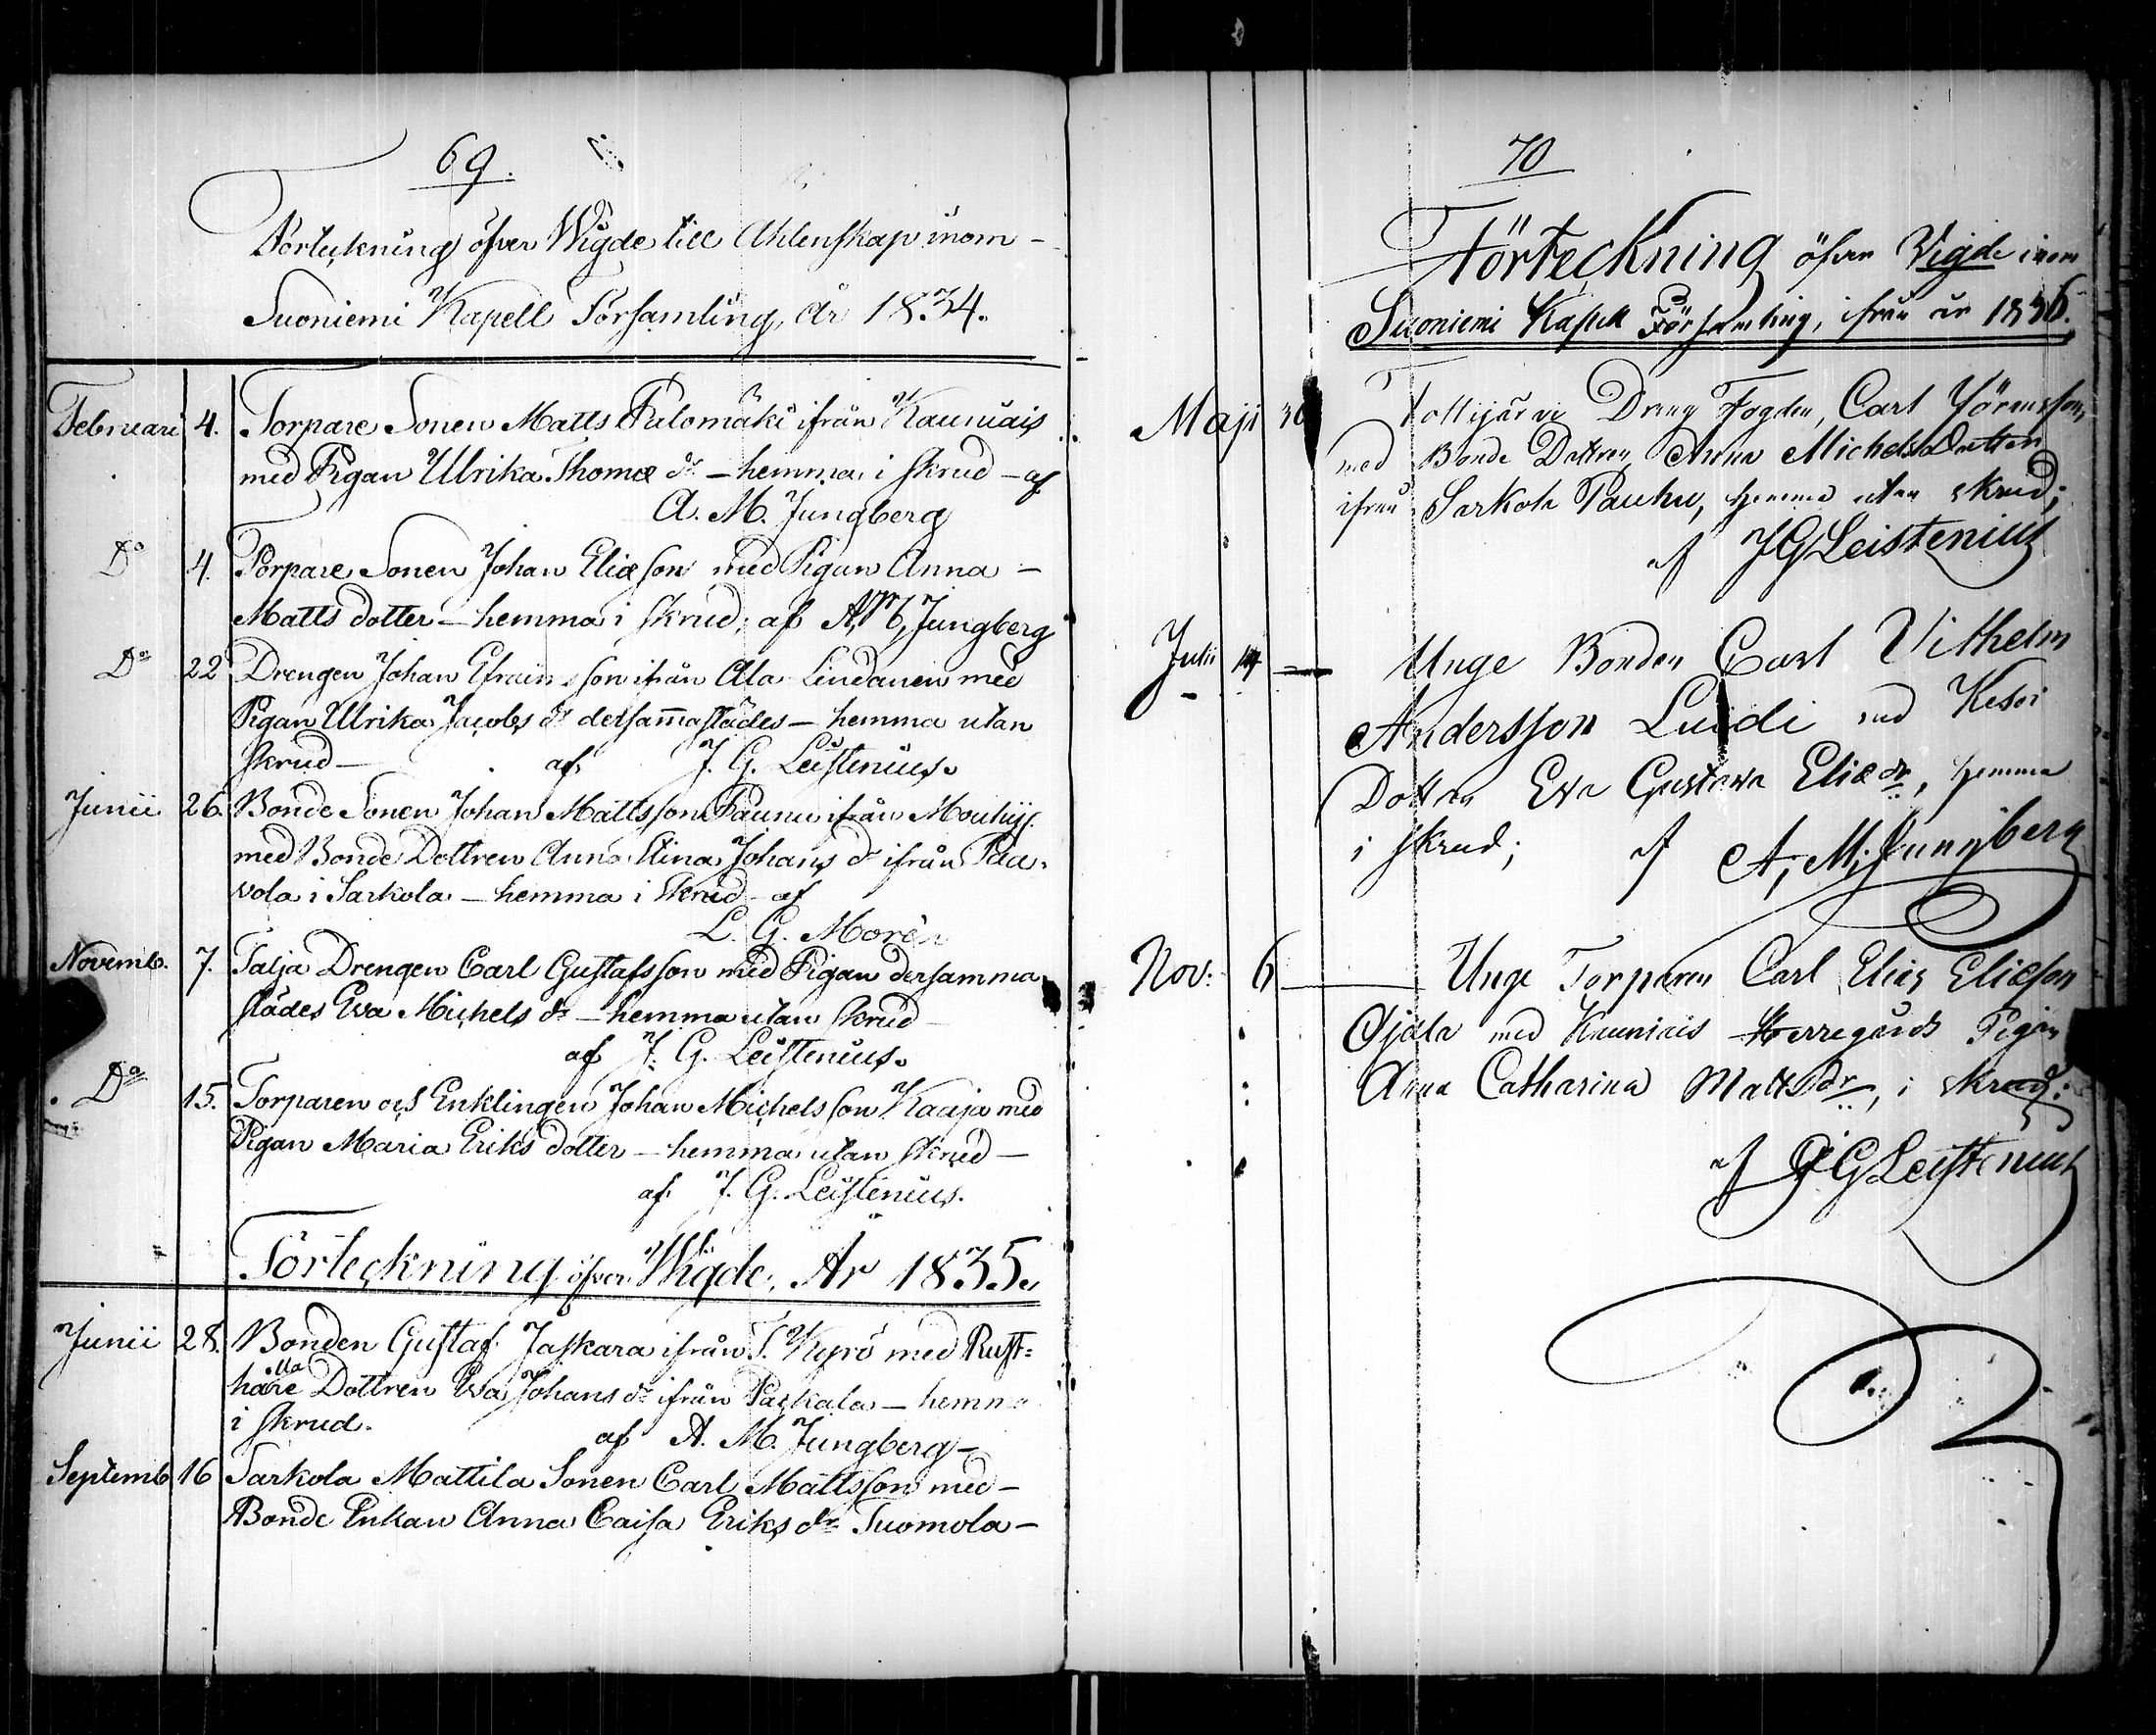 69.
Förteckning öfver Wigde till Ächtenskap inom -
Suoniemi Kapell Församling, År 1834.
Februari 4. Torpare Sonen Matts Palomäki ifrån Kauniais
med Pigan Ulrika Thomæ dr - hemma i skrud - af
A. M. Jungberg
Do 4. Torpare Sonen Johan Eliæson med Pigan Anna -
Matts dotter - hemma i skrud; af A, M, Jungberg
Do 22 Drengen Johan Efraimsson ifrån Ala Lindanen med
Pigan Ulrika Jacobs dr dersammastädes - hemma utan
skrud - af J. G. Leistenius.
Junii 26. Bonde Sonen Johan Mattsson Paunu ifrån Mouhij.
med Bonde Dottren Anna Elina Johans dr ifrån Paa-
vola i Sarkola - hemma i skrud - af
L. G. Morén
Novemb. 7. Talja Drengen Carl Gustafsson med Pigan dersamma
städes Eva Michels dr - hemma utan skrud -
af J. G. Leistenius.
Do 15. Torparen och Enklingen Johan Michelsson Kaaja med
Pigan Maria Eriks dotter - hemma utan skrud -
af J. G. Leistenius.
Förteckning öfver Wigde, År 1835.
Junii 28. Bonden Gustaf Jaskara ifrån T. Kyrö med Rust=
lla
häre Dottren Eva Johans dr ifrån Paskala - hemma
i skrud. af A. M. Jungberg -
Septemb 16 Sarkola Mattila Sonen Carl Mattsson med -
Bonde Enkan Anna Caisa Eriks dr Tuomola -
70
Förteckning öfver Vigde inom
Suoniemi Kapell Församling, ifrån år 1836.
Maji 30 Tottijärvi Dreng Fogden, Carl Göransson,
med Bonde Dottren Anna Michels Dotter
ifrån Sarkola Pauhu, hemma utan skrud;
af JG Leistenius
Julii 14 - Unge Bonden Carl Vilhelm
Andersson Luodi med Kesti
Dottren Eva Gustava Eliæ dr, hemma
i skrud; af A, M, Jungberg
Nov: 6 Unge Torparen Carl Elias Eliæson
Ojala med Kauniais Herregårds Pigan
Anna Catharina Matts dr, i skrud:
af JG Leistenius